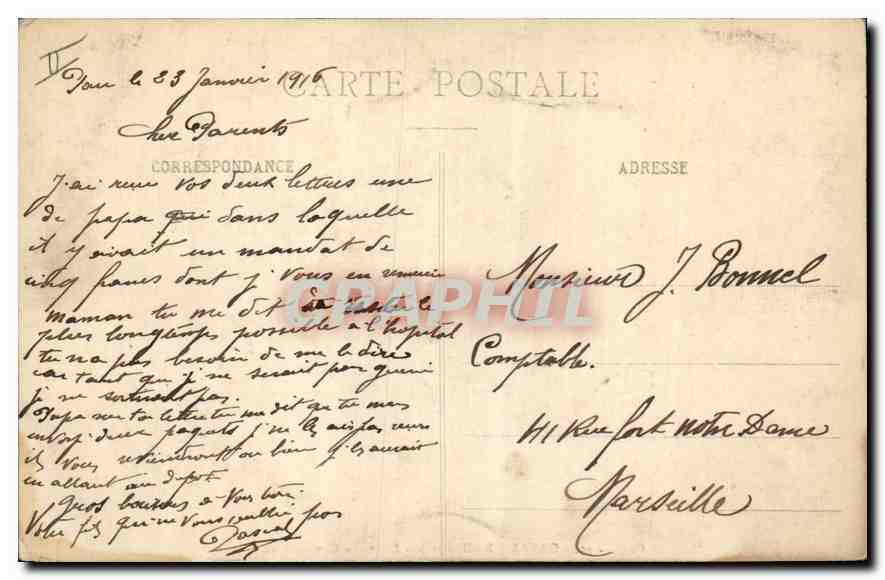 Pau le 23 Janvier 1916
CARTE POSTALE
Cher Parents
CORRESPONDANCE
J'ai recu vos deux lettres une
de papa qui dans laquelle
il y avait un mandat de
cinq francs dont j Vous en remercie
maman tu me dit le
plus longtemps possible a l'hopital
tu na pas besoin de me le dire
car tant que j ne serait pas gueri
j ne sortirait pas.
Papa sur ta lettre tu me dit que tu mas
deux paquets j ne les ais pas recus
ils vous reviendront ou bien j les aurait
en allant au depot
Gros a Vous
Votre fils qui ne Vous oublie pas
Pascal
ADRESSE
Monsieur J. Bonnel
Comptable.
41 Rue fort Notre Dame
Marseille
CARAPHIL